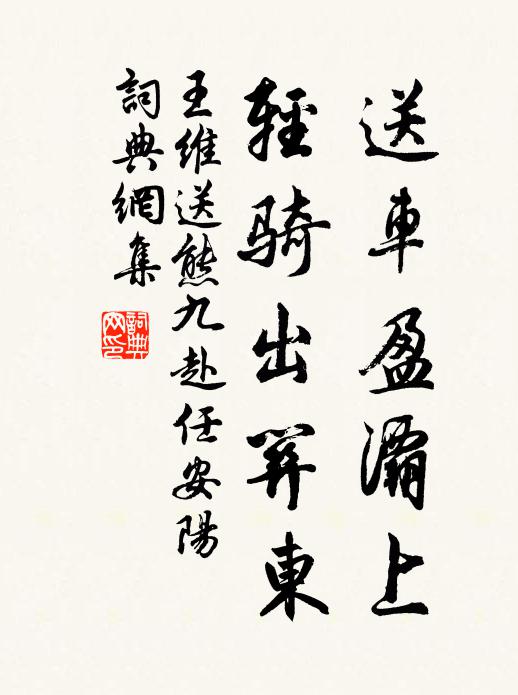 送車盈灞上
輕騎出關東
王維送熊九赴任安陽
詞典網集
詞典网印